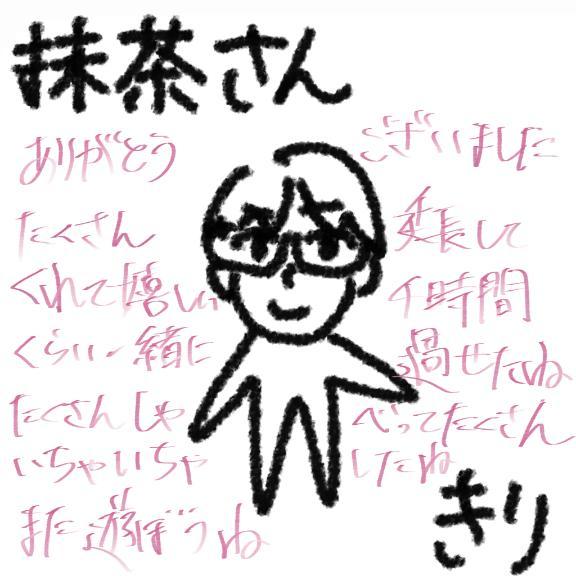 抹茶さん
ありがとう ございました
たくさん 延長して
くれて嬉しい 4時間
くらい一緒に 過せたね
たくさんしゃ べってたくさん
いちゃいちゃ したね
また遊ぼうね
きり